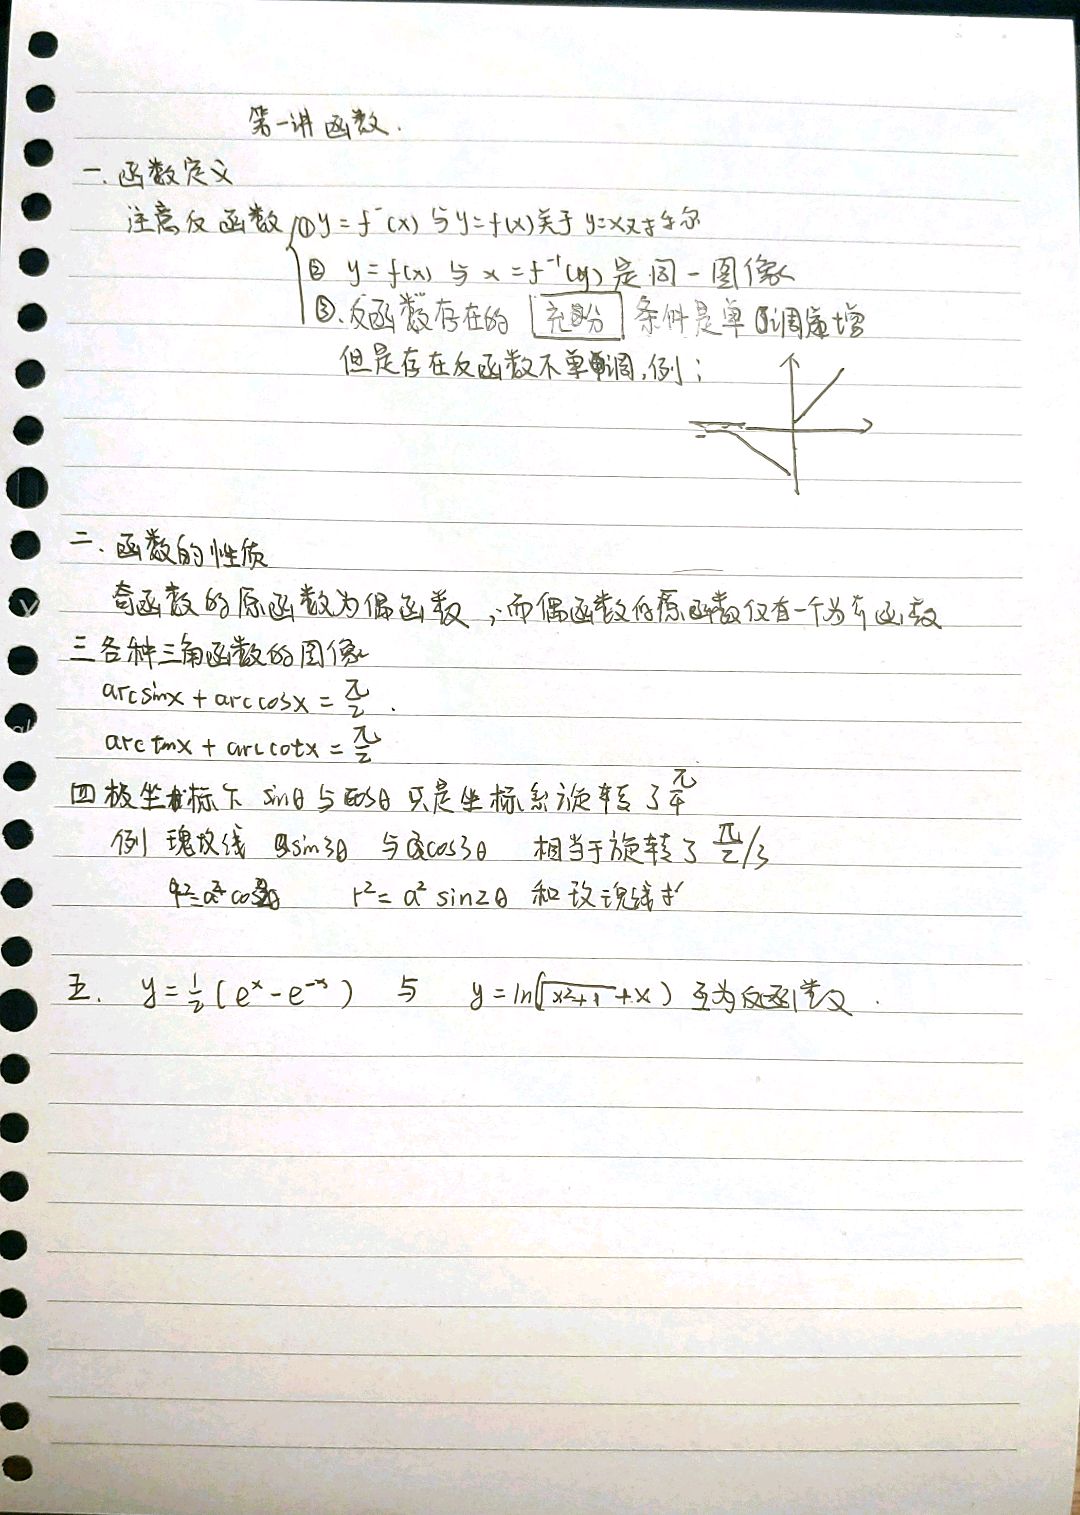 第一讲 函数.
一. 函数定义
注意反函数 ①y=f⁻(x) 与y=f(x)关于 y=x对称
② y=f(x) 与 x=f⁻¹(y) 是同一图像
③.反函数存在的 充分 条件是单调递增
但是存在反函数不单调,例:
二. 函数的性质
奇函数的原函数为偶函数,而偶函数的原函数仅有一个为奇函数
三 各种三角函数的图像
arcsinx + arccosx = π/2 .
arctanx + arccotx = π/2
四 极坐标下 sinθ 与 cosθ 只是坐标系旋转了 π/4
例 瑰玫线 asin3θ 与acos3θ 相当于旋转了 π/2/3
r²=a²cos2θ r²= a² sin2θ 和玫瑰线
五. y=1/2(eˣ-e⁻ˣ) 与 y=ln(√x²+1+x) 互为反函数.